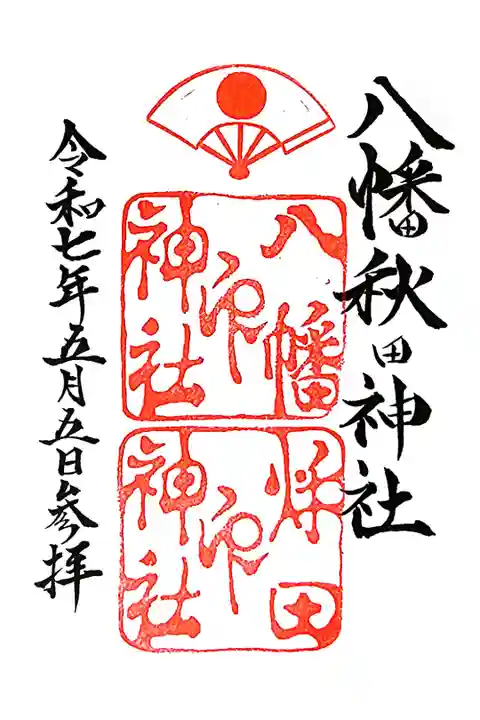 八幡秋田神社
八幡
神社
印
秋田
神社
印
令和七年五月五日参拝